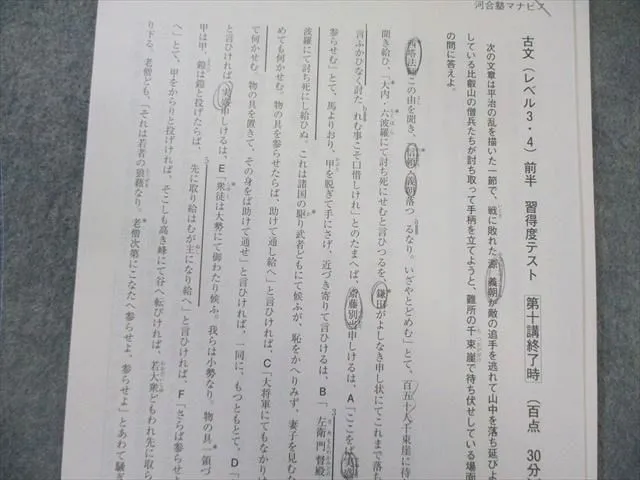 河合塾マナビス
古文(レベル3・4) 前半 習得度テスト 第十講終了時 (百点 30分
次の文章は平治の乱を描いた一節で、戦に敗れた源義朝が敵の追手を逃れて山中を落ち延びよ
している比叡山の僧兵たちが討ち取って手柄を立てようと、難所の千束崖で待ち伏せしている場面
の問に答えよ。
西塔法師この由を聞き、「信頼・義朝落つるなり。いざやとどめむ」とて、百五十人千束崖に待
聞き給ひ、「大内・六波羅にて討ち死にせむと言ひつるを、鎌田がよしなき申し状にてこれまで落ち
言ふかひなく討たれむ事こそ口惜しけれ」とのたまへば、斎藤別当申しけるは、A「ここをば実
参らせむ」とて、馬よりおり、甲を脱ぎて手にさげ、近づき寄りて言ひけるは、B「左衛門督殿
波羅にて討ち死にし給ひぬ。これは諸国の駆り武者どもにて候ふが、恥をかへりみず、妻子を見むな
めても何かせむ。物の具を参らせたらば、助けて通し給へ」と言ひければ、C「大将軍にてもなかりけ
て何かせむ。物の具を置きて、その身をば助けて通せ」と言ひければ、一同に、もつともとて、D「
と言ひければ、実盛申しけるは、E「衆徒は大勢にて御わたり候ふ。我らは小勢なり。物の具一領づ
甲は甲、鎧は鎧と投げたらば、先に取り給はむが主になり給へ」と言ひければ、F「さらば参らせよ
へ」とて、甲をからりと投げければ、そこしも高き峰にて谷へ転びければ、若大衆どもわれ先に取ら
り下る。老僧ども、「それは若者の狼藉なり。老僧次第にこなたへ参らせよ、参らせよ」とあわて騒ぎ